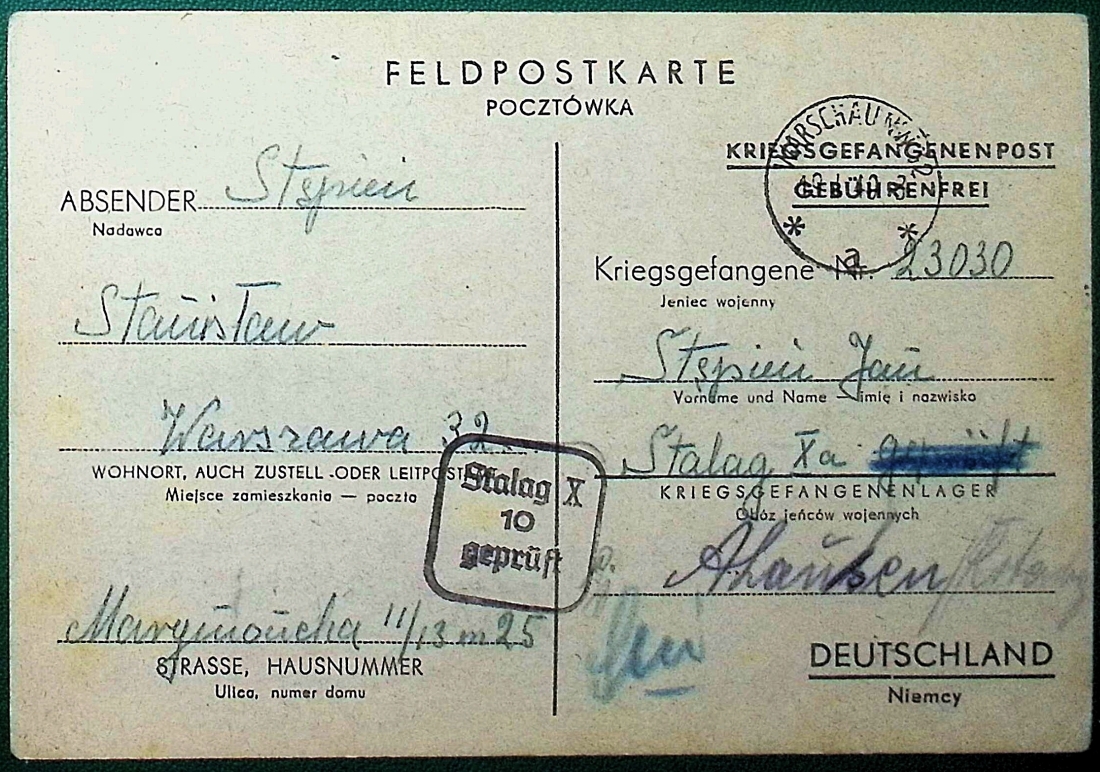 FELDPOSTKARTE
POCZTÓWKA
KRIEGSGEFANGENENPOST
GEBÜHRENFREI
WARSCHAU
a
ABSENDER Stępień
Nadawca
Stanisław
Warszawa 32
WOHNORT, AUCH ZUSTELL-ODER LEITPOST
Miejsce zamieszkania — poczta
Marymoncka 11/13 m 25
STRASSE, HAUSNUMMER
Ulica, numer domu
Stalag X
10
geprüft
Kriegsgefangene Nr. 23030
Jeniec wojenny
Stępień Jan
Vorname und Name — imię i nazwisko
Stalag Xa
KRIEGSGEFANGENENLAGER
Obóz jeńców wojennych
DEUTSCHLAND
Niemcy